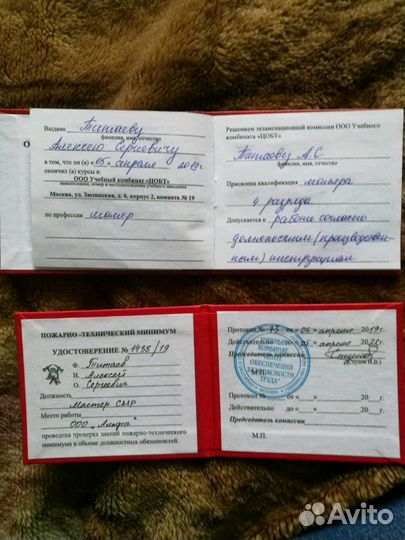 Выдано Титаеву
фамилия, имя, отчество
Алексею Сергеевичу
в том, что он (а) «05» апреля 2019 г.
окончил (а) курсы в:
ООО Учебный комбинат "ЦОБТ"
наименование, номер и местонахождение учебного заведения
Москва, ул. Зюзинская, д. 6, корпус 2, комната № 19
по профессии маляр
Решением экзаменационной комиссии ООО Учебного
комбината «ЦОБТ»
Титаеву А С
фамилия, имя, отчество
Присвоена квалификация маляра
4 разряда
Допускается к работе согласно
должностным (производствен-
ным) инструкциям
ПОЖАРНО-ТЕХНИЧЕСКИЙ МИНИМУМ
УДОСТОВЕРЕНИЕ № 1438/19
Ф. Титаев
И. Алексей
О. Сергеевич
Должность
Мастер СМР
Место работы
ООО „Альфа"
проведена проверка знаний пожарно-технического
минимума в объеме должностных обязанностей.
Протокол № 73 от «05» апреля 2019 г.
Действительно до «05» апреля 20 г.
Председатель комиссии
М.П.
КОМБИНАТ
ЦЕНТР
ОБЕСПЕЧЕНИЯ
БЕЗОПАСНОСТИ
ТРУДА"
МОСКВА
Протокол № от « » 20 г.
Действительно до « » 20 г.
Председатель комиссии
М.П.
Avito